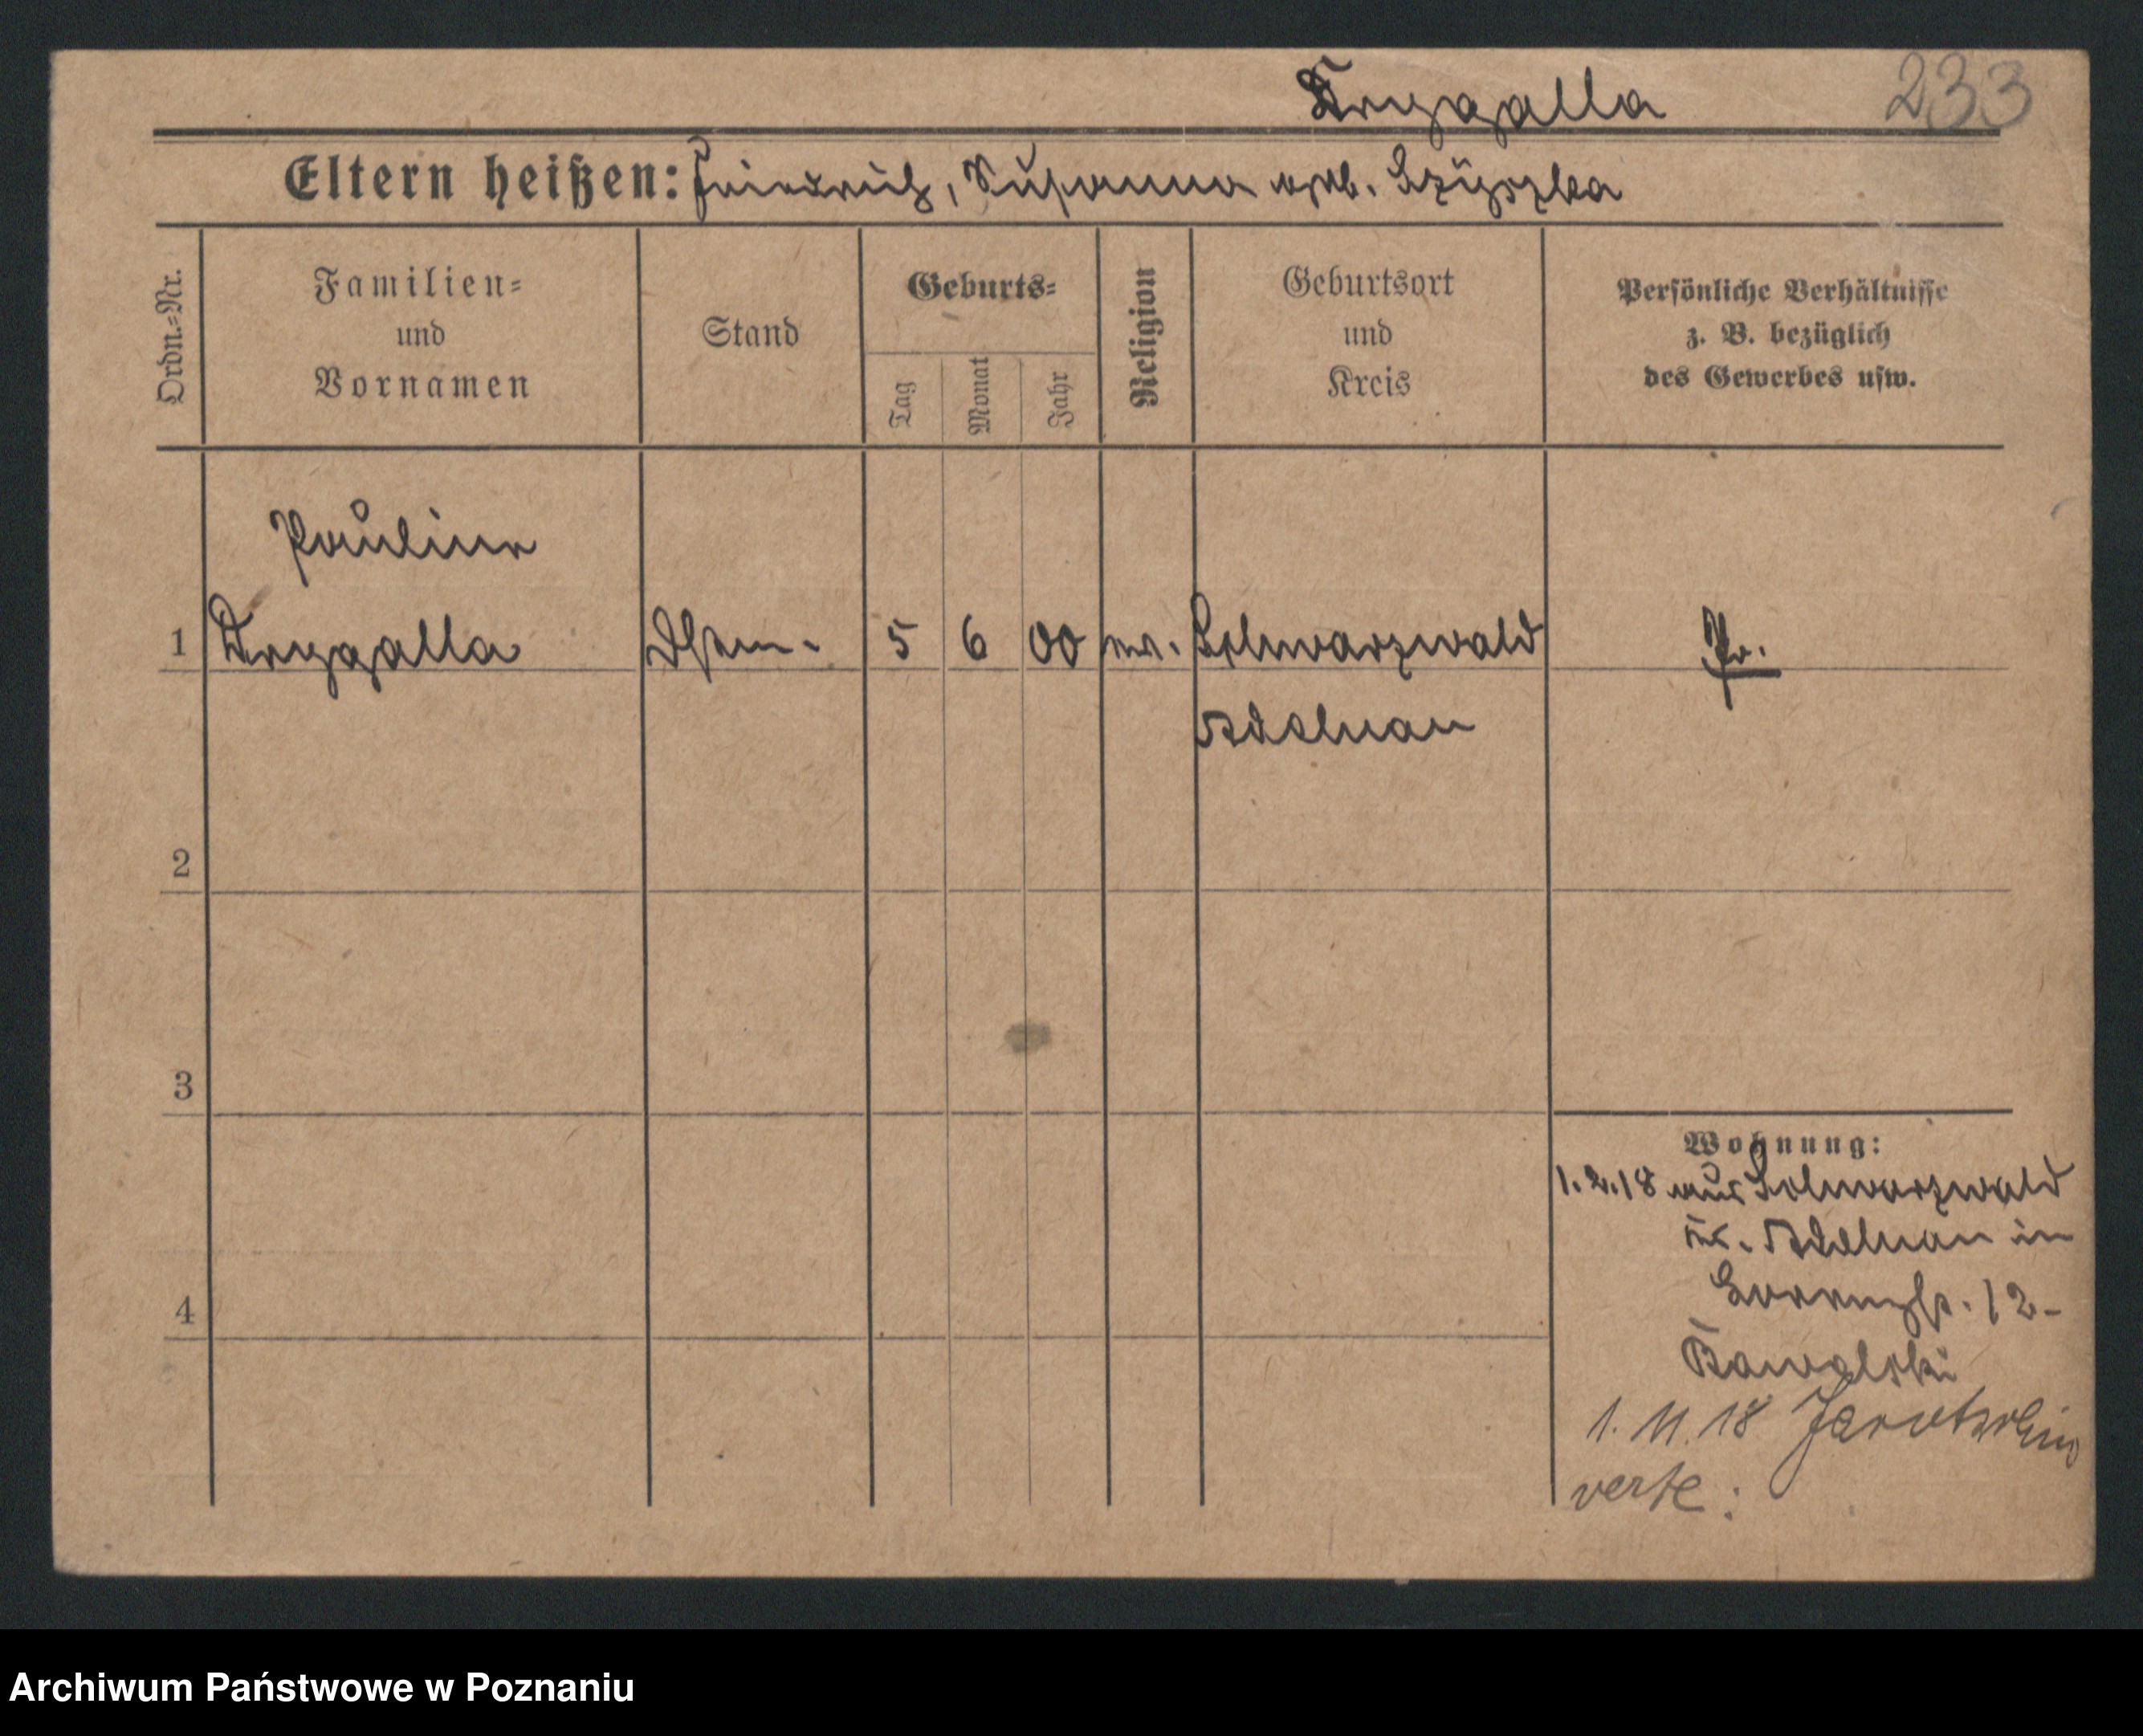 Dryggalla 233
Eltern heißen: Friedrich, Susanna geb.
Ordn.=Nr. Familien= und Vornamen Stand Geburts= Tag Monat Jahr Religion Geburtsort und Kreis Persönliche Verhältnisse z. B. bezüglich des Gewerbes usw.
Pauline
1 Dryggalla 5 6 00 ev. Schwarzwald Pr.
Adelnau
2
3
Wohnung:
1.2.18 aus Schwarzwald
Kr. Adelnau in
12-
4
Kawalski
1. 11. 18 Jarotschin
verte:
Archiwum Państwowe w Poznaniu